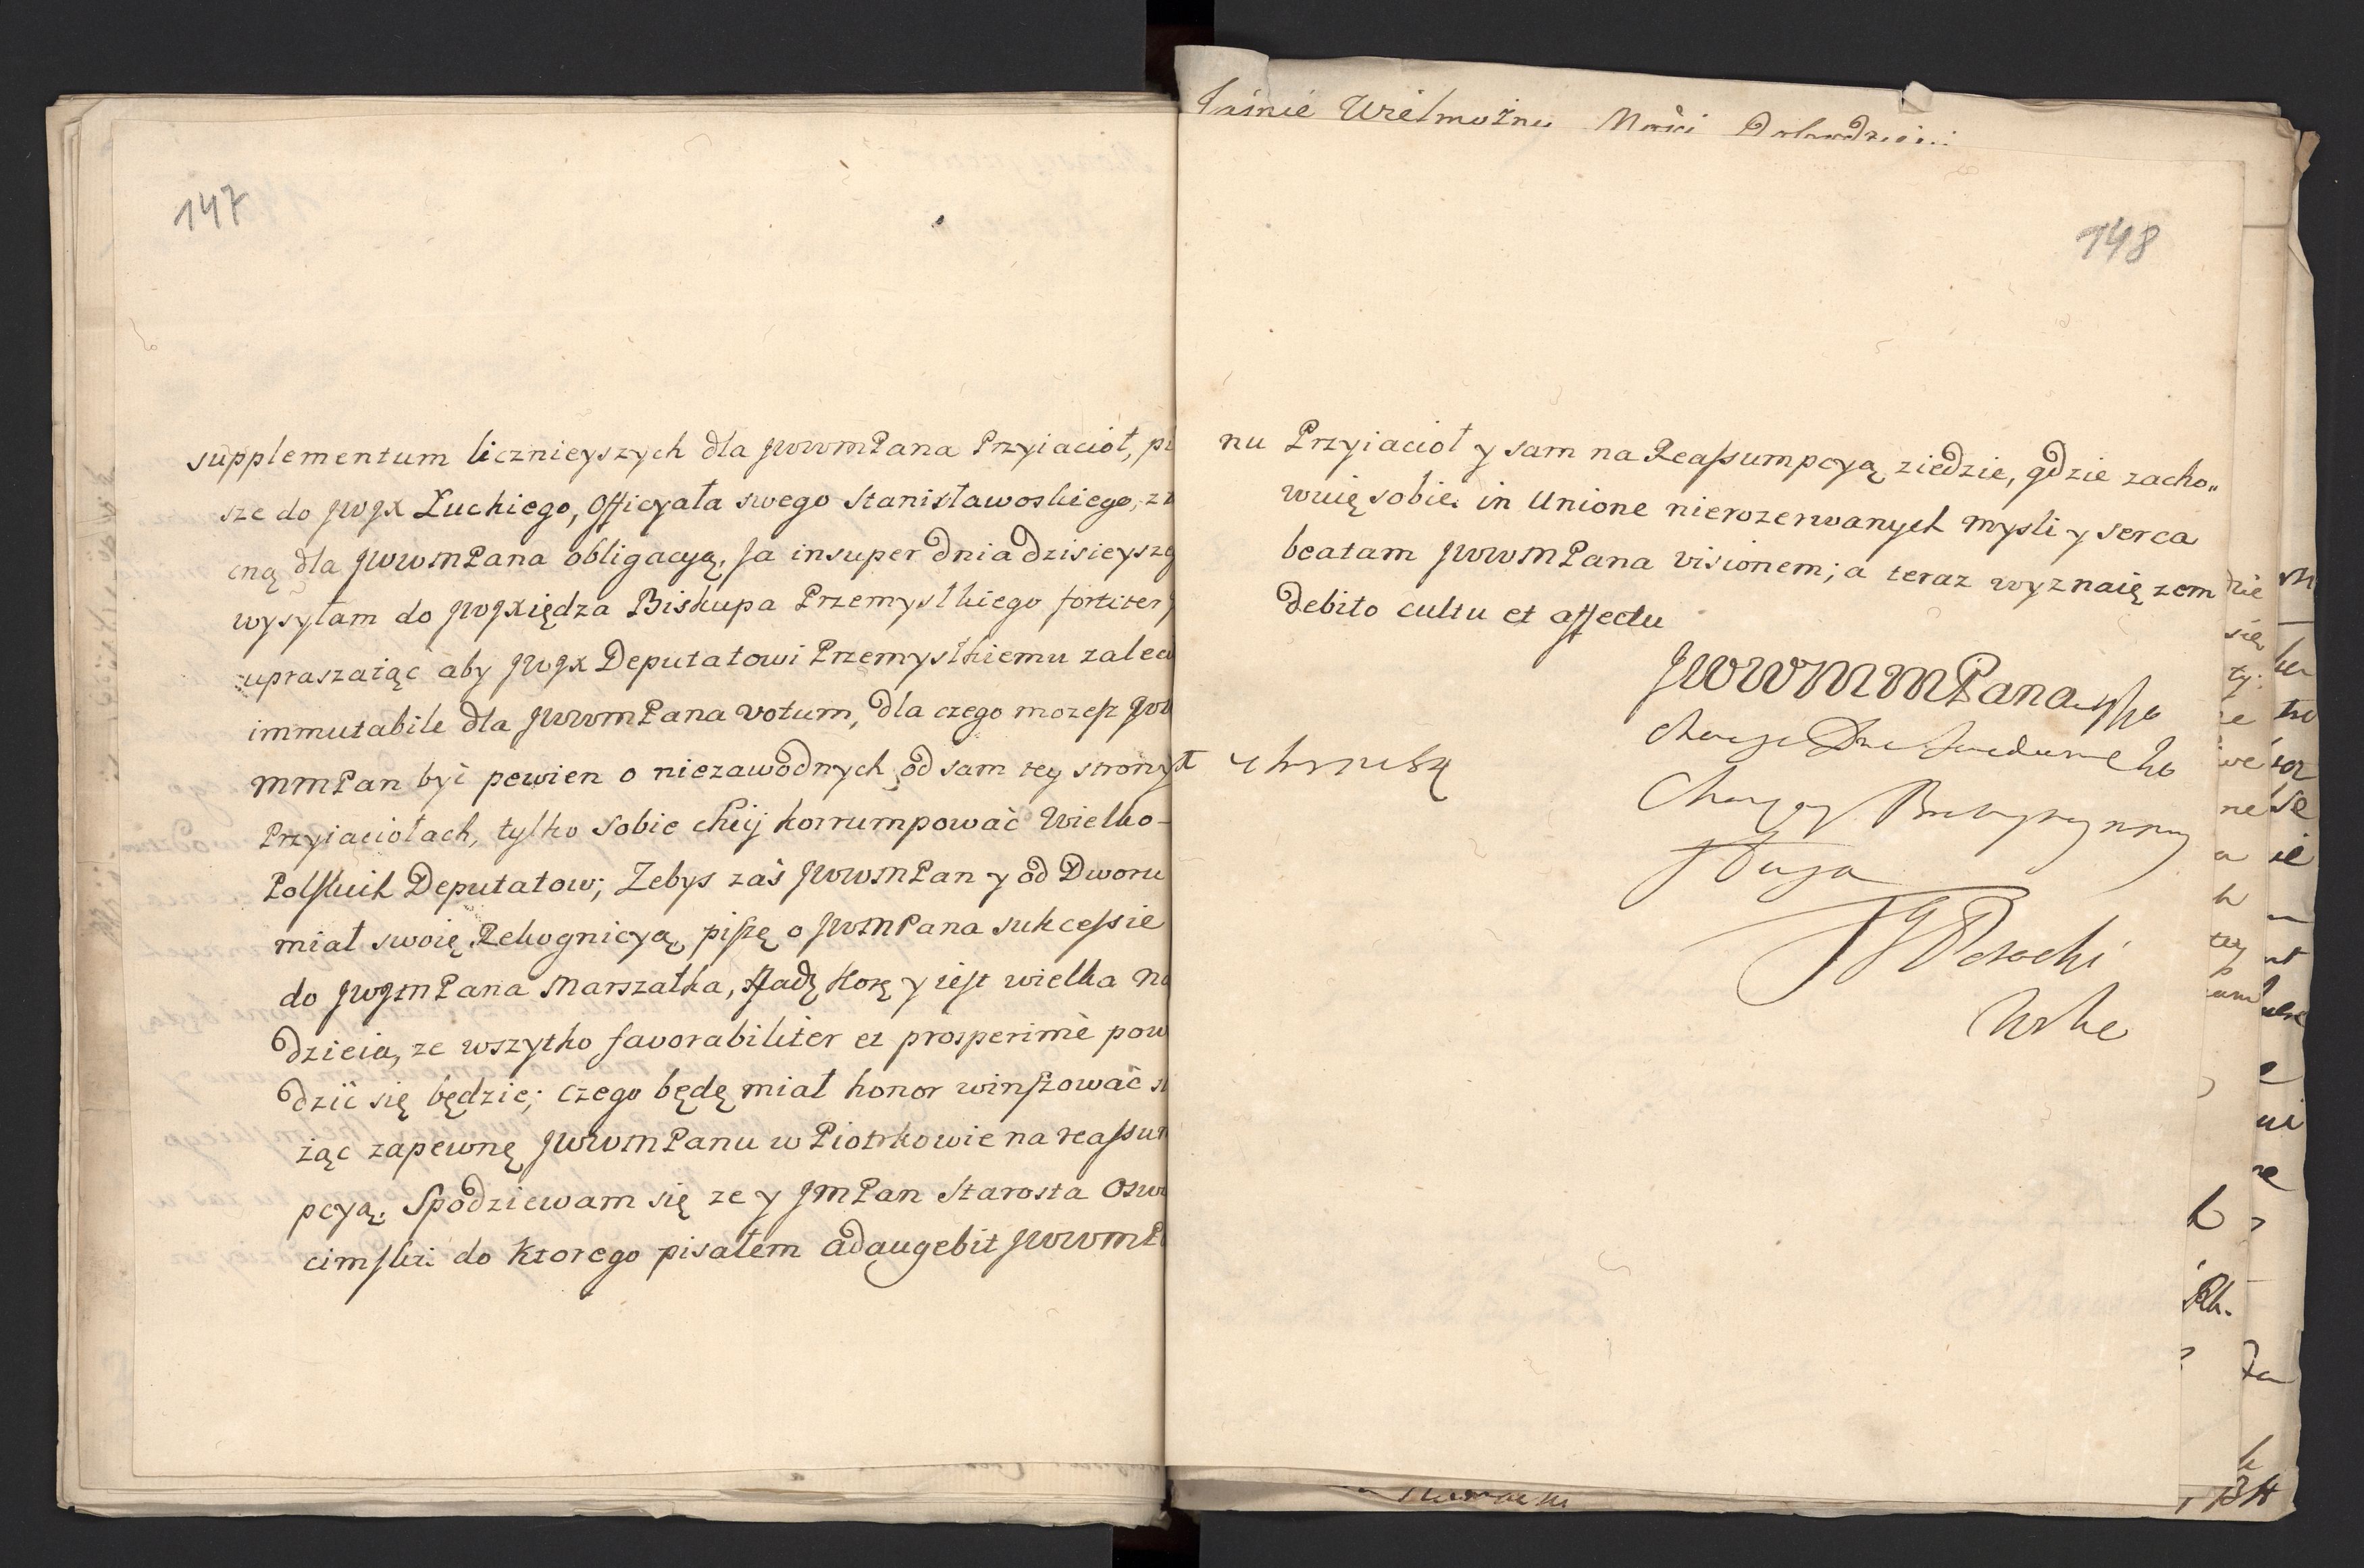 147
supplementum licznieyszych dla JWWMPana Przyiacioł, pi
sze do JWJX Łuckiego, Officyała swego Stanisławoskiego, z
cną dla JWWMPana obligacyą. Ja insuper dnia dzisieysze
wysyłam do JWJXiędza Biskupa Przemyslkiego fortiter
upraszaiąc aby JWJX Deputatowi Przemyslkiemu zalec
immutabile dla JWWMPana votum, dla czego mozesz JW
MMPan być pewien o niezawodnych od sam tey strony
Przyiaciołach, tylko sobie chciy korrumpować Wielko-
Polskich Deputatow; Zebys zaś JWWMPan y od Dworu
miał swoię Rekognicyą, piszę o JWMPana sukcessie
do JWJMPana Marszałka, Nad: Kor: y iest wielka na
dzieia, ze wszytko favorabiliter et prosperimè pow
dzić się będzie; czego będę miał honor winszować
żąc zapewnę JWWMPanu w Piotrkowie na reassum
pcyą. Spodziewam się ze y JMPan Starosta Oswi
cimski do Ktorego pisałem adaugebit JWWMP
Jaśnie Wielmożny Mości Dobrodzieiu
148
nu Przyiacioł y sam na Reassumpcyą ziedzie, gdzie zacho„
wuię sobie in Unione nierozerwanych mysli y serca
beatam JWWMPana visionem; a teraz wyznaię zem
debito cultu et affectu
JWWMMPana
Sługa
Potocki